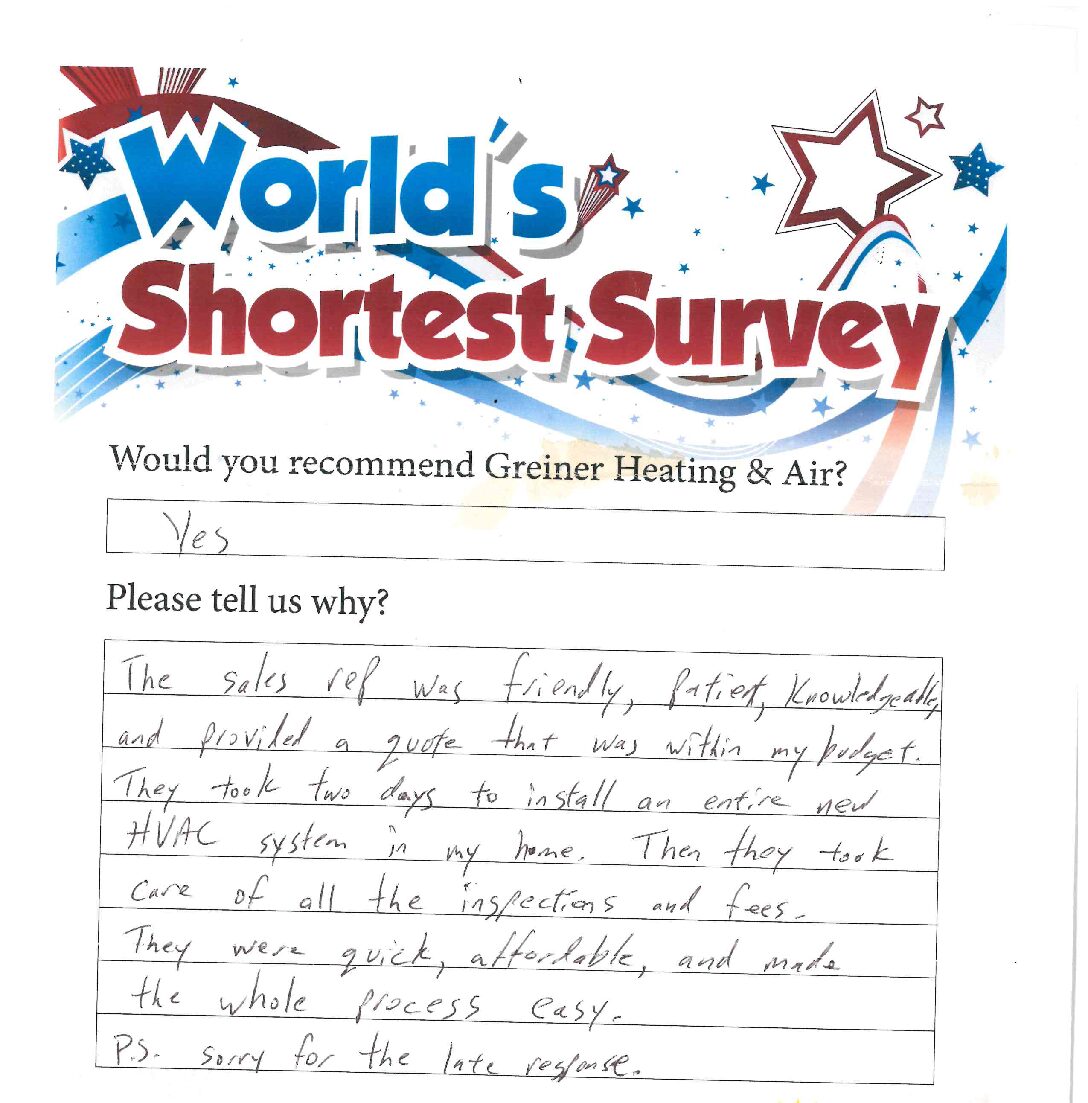 World's
Shortest Survey
Would you recommend Greiner Heating & Air?
Yes
Please tell us why?
The sales rep was friendly, patient, knowledgeable,
and provided a quote that was within my budget.
They took two days to install an entire new
HVAC system in my home. Then they took
care of all the inspections and fees.
They were quick, affordable, and made
the whole process easy.
P.S. sorry for the late response.